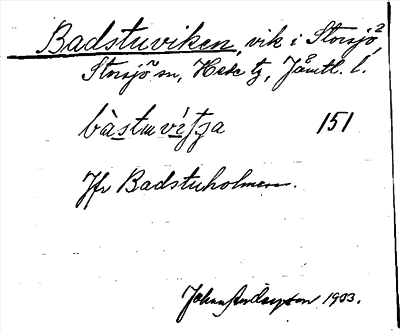 Badstuviken, vik i Storsjö,
Storsjö sn, Hede tg, Jämtl. l.
bàstuvi̍tʃa 151
Jfr Badstuholmen.
Johan Anderson 1933.